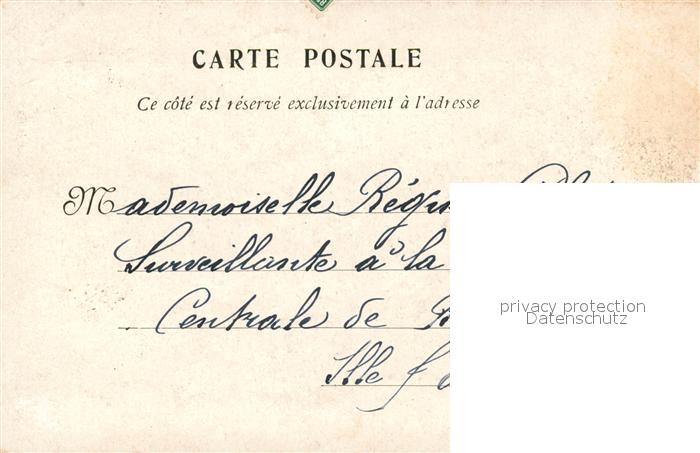 CARTE POSTALE
Ce côté est réservé exclusivement à l'adresse
Mademoiselle
Surveillante à la
Centrale de
Ille
privacy protection
Datenschutz